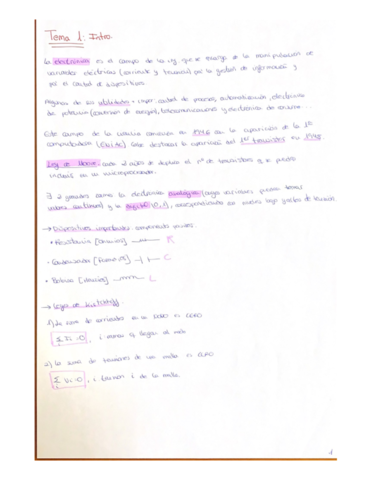 Tema 1: Intro.
La electrónica es el campo de la ing. que se encarga de la manipulación de
variables eléctricas (corriente y tensión) por la gestión de información y
por el control de dispositivos.
control de procesos, automatización, electrónica
de potencia telecomunicaciones y electrónica de consumo...
Este campo de la ciencia comienza en 1946 con la aparición de la 1ª
computadora (ENIAC) Cabe destacar la aparición del 1er transistor en 1948.
Ley de Moore: cada 2 años se duplica el nº de transistores que se puede
incluir en un microprocesador.
∃ 2 grandes ramas la electrónica analógica (cuyas variables pueden tomar
valores continuos) y la digital (0,1), correspondiente con niveles bajo y alto de tensión.
→ Dispositivos importantes componentes pasivos:
• Resistencia [Ohmios] R
• Condensador [Faradios] C
• Bobina [Henrios] L
→ Leyes de Kirchhoff
1) La suma de corrientes en un nudo es CERO
Σ Ii = 0, i
2) La suma de tensiones de una malla es CERO
Σ Vi = 0, i tensión i de la malla.
1